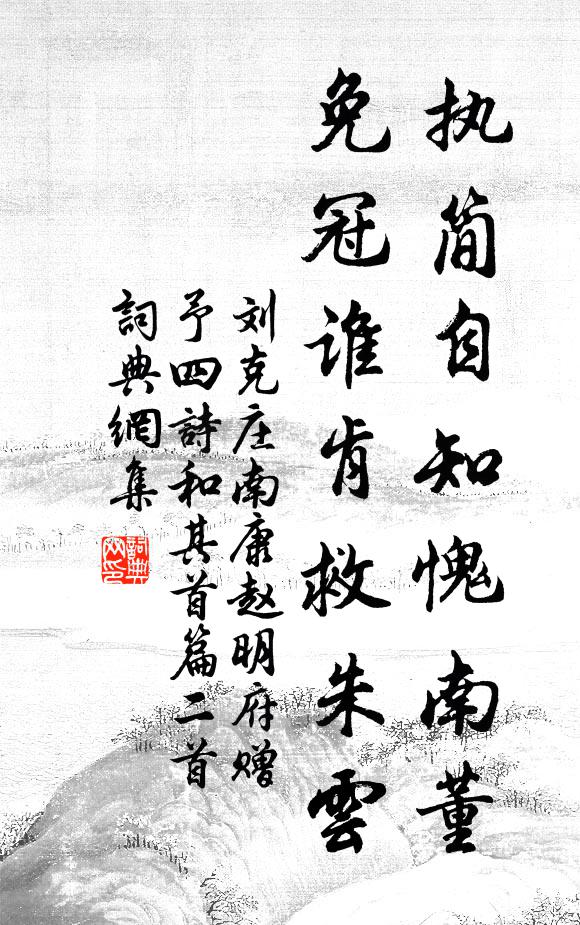 执简自知愧南董
免冠谁肯救朱雲
刘克庄南康赵明府赠
予四詩和其首篇二首
詞典網集
詞典
网印